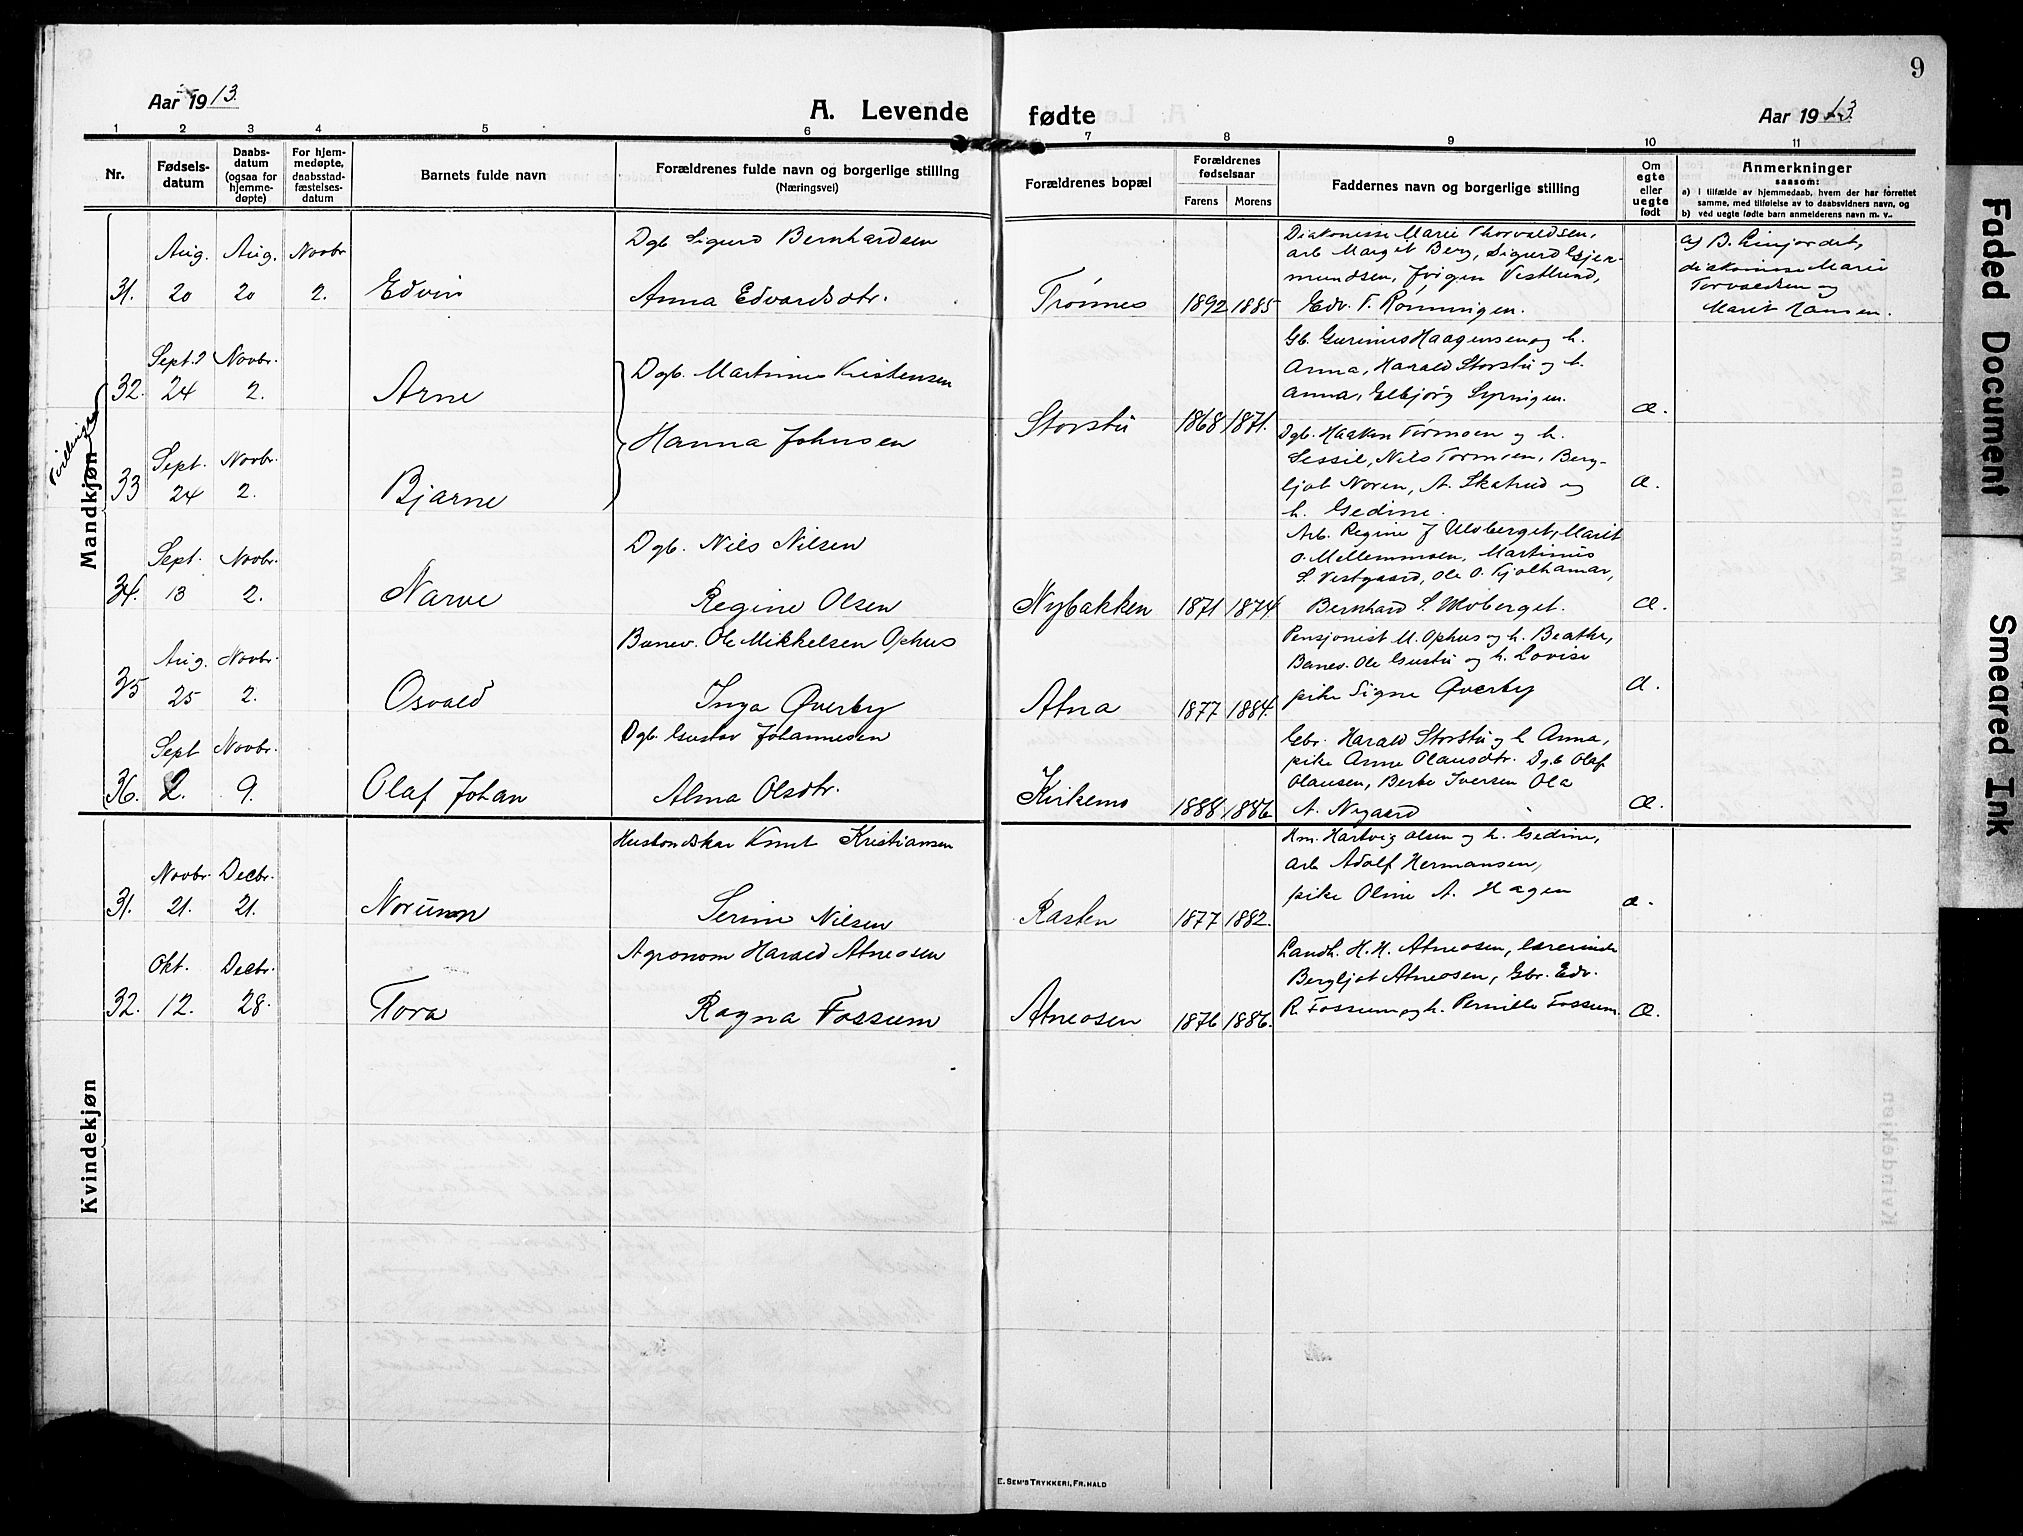 9
Aar 1913.
A. Levende fødte
Aar 1913.
1 2 3 4 5 6 7 8 9 10 11
Nr.
Fødsels-
datum
Daabs-
datum
(ogsaa for
hjemme-
døpte)
For hjem-
medøpte,
daabsstad-
fæstelses-
datum
Barnets fulde navn
Forældrenes fulde navn og borgerlige stilling
(Næringsvei)
Forældrenes bopæl
Forældrenes
fødselsaar
Farens Morens
Faddernes navn og borgerlige stilling
Om
egte
eller
uegte
født
Anmerkninger
saasom:
a) i tilfælde av hjemmedaab, hvem der har forrettet
samme, med tilføielse av to daabsvidners navn, og
b) ved uegte fødte barn anmelderens navn m. v..
Mandkjøn
Tvillinger
31.
Aug.
20
Aug.
20
Novbr
2.
Edvin
Dgb Sigurd Bernhardsen
Anna Edvardsdtr.
Trønnes
1892 1885
Diakonesse Marie Thorvaldsen,
arb Margit Berg, Sigurd Gjer-
mundsen, Vestlund,
Edv. T. Rønningen.
a) B. Linjordet,
diakonisse Marie
Torvaldsen og
Marit Hansen.
32.
Sept.
24
Novbr.
2.
Arne
Dgb. Martinus Kristensen
Hanna Johnsen
Storstu
1868 1871.
Gb. Gurinius Haagensen og h.
Anna, Harald Storstu og h.
Anna, Gelbjørg
Æ.
33
Sept.
24
Novbr.
2.
Bjarne
Dgb. Haakon Tørmoen og h.
Sessil, Nils Tørmoen, Berg-
ljot Noren, A. Skatrud og
h. Gedine.
Æ.
34.
Sept.
13
Novbr.
2.
Narve
Dgb. Nils Nilsen
Regine Olsen
Nybakken
1871 1874.
Arb. Regine J Ulvberget, Marit
O. Mellemmoen, Martinus
S. Vestgaard, Ole O. Kjølhamar,
Bernhard S. Ulvberget.
Æ.
35
Aug.
25
Novbr.
2.
Osvald
Banev. Ole Mikkelsen Ophus
Inga Øverby
Atna
1877 1884.
Pensjonist M. Ophus og h. Beathe,
Banev. Ole Gustu og h. Lovise
pike Signe Øverby
Æ.
36.
Sept
2.
Novbr.
9.
Olaf Johan
Dgb. Gustav Johannesen
Alma Olsdtr.
Kirkemo
1888 1886
Gbr. Harald Storstu og h Anna,
pike Anne Olausdtr. Dgb Olaf
Olausen, Berte Iversen Ola
A. Nygaard
Æ.
Kvindekjøn
31.
Novbr
21.
Decbr.
21.
Norunn
Husbondskar Knut Kristiansen
Serine Nilsen
Rasten
1877 1882.
Hm. Hartvig Olsen og h. Gedine,
arb Adolf Hermansen,
pike Oline A. Hagen
Æ.
32.
Okt.
12.
Decbr.
28.
Tora
Agronom Harald Atneosen
Ragna Fossum
Atneosen
1876 1886.
Landh. H. H. Atneosen, lærerinde
Bergljot Atneosen, Gbr. Edv.
R. Fossum og h. Pernille Fossum
Æ.
E. SEM'S TRYKKERI, FR.HALD
Faded Document
Smeared Ink